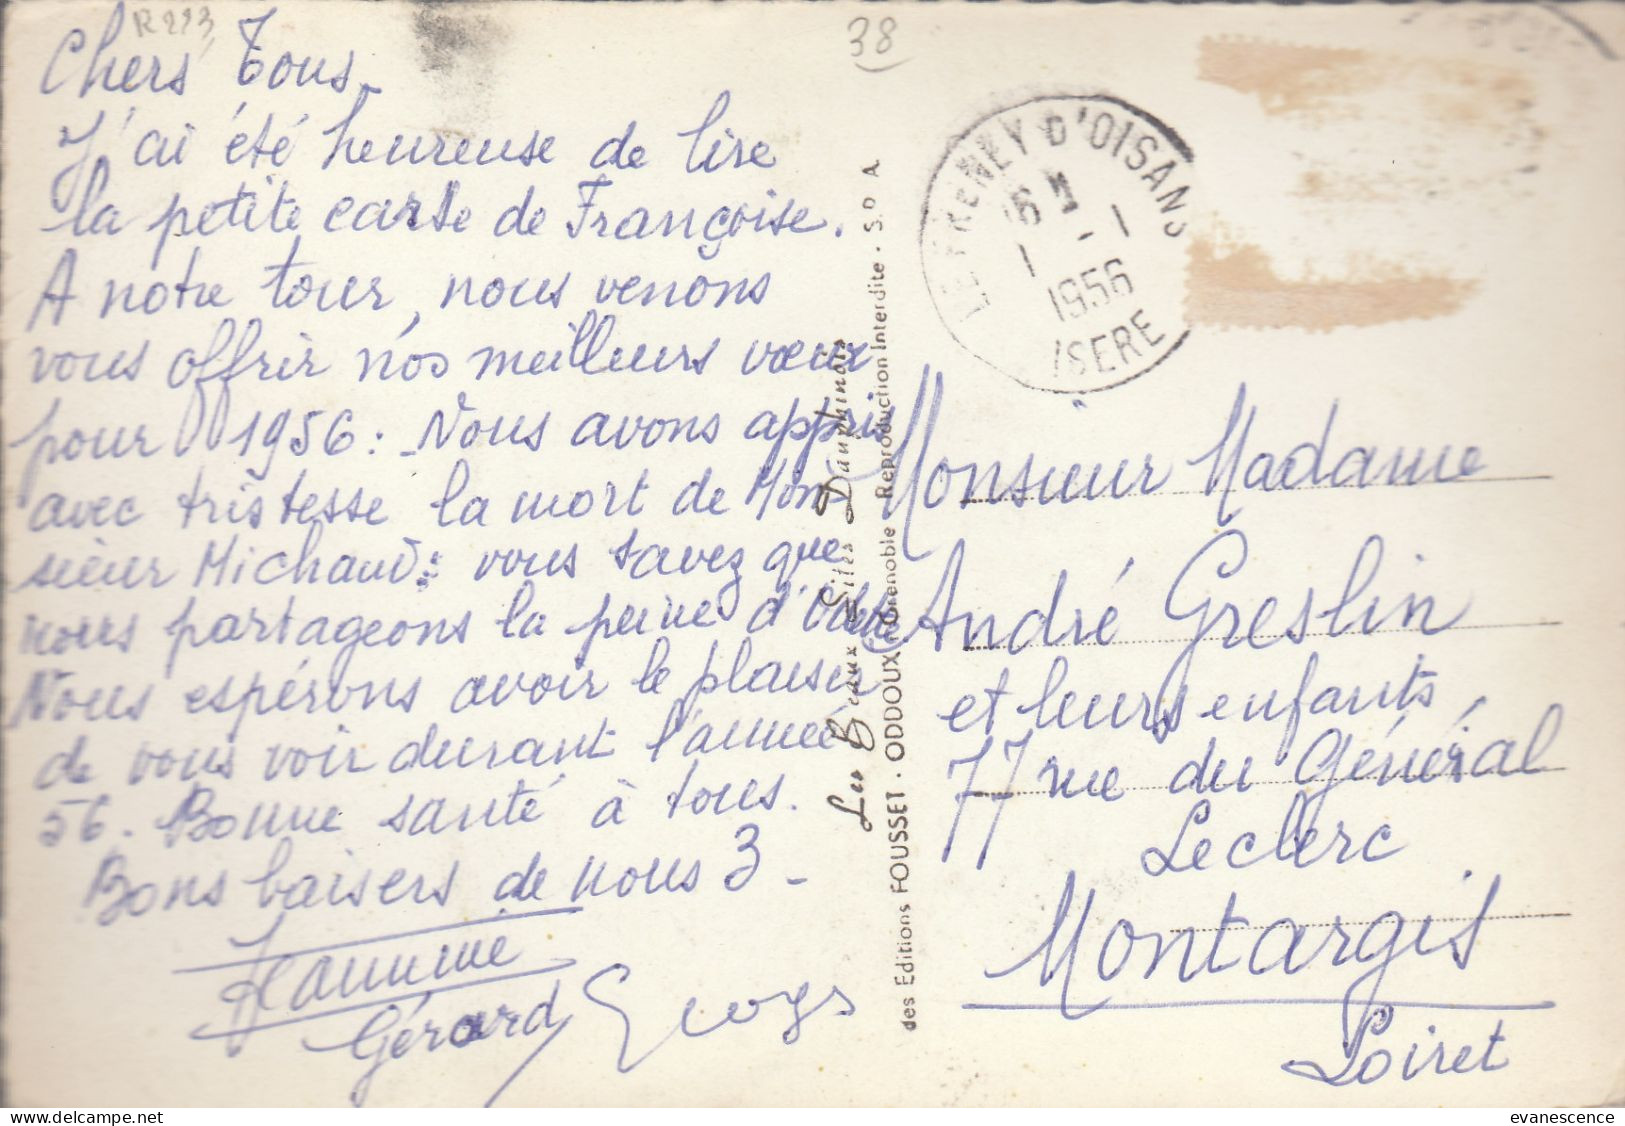 R 223
38
Chers Tous.
J'ai été heureuse de lire
la petite carte de Françoise.
A notre tour, nous venons
vous offrir nos meilleurs vœux
pour 1956 : - Nous avons appris
avec tristesse la mort de Mon
sieur Michaud : vous savez que
nous partageons la peine d'
Nous espérons avoir le plaisir
de vous voir durant l'année
56. Bonne santé à tous.
Bons baisers de nous 3 -
Jeannine
Gérard Georges
Les Beaux Sites Dauphinois
des Editions FOUSSET . ODDOUX Grenoble Reproduction Interdite . S. P. A.
LE FRENEY D'OISANS
16 H
1 - 1
1956
ISERE
Monsieur Madame
André Greslin
et leurs enfants
77 rue du Général
Leclerc
Montargis
Loiret
Delcampe.net
evanescence